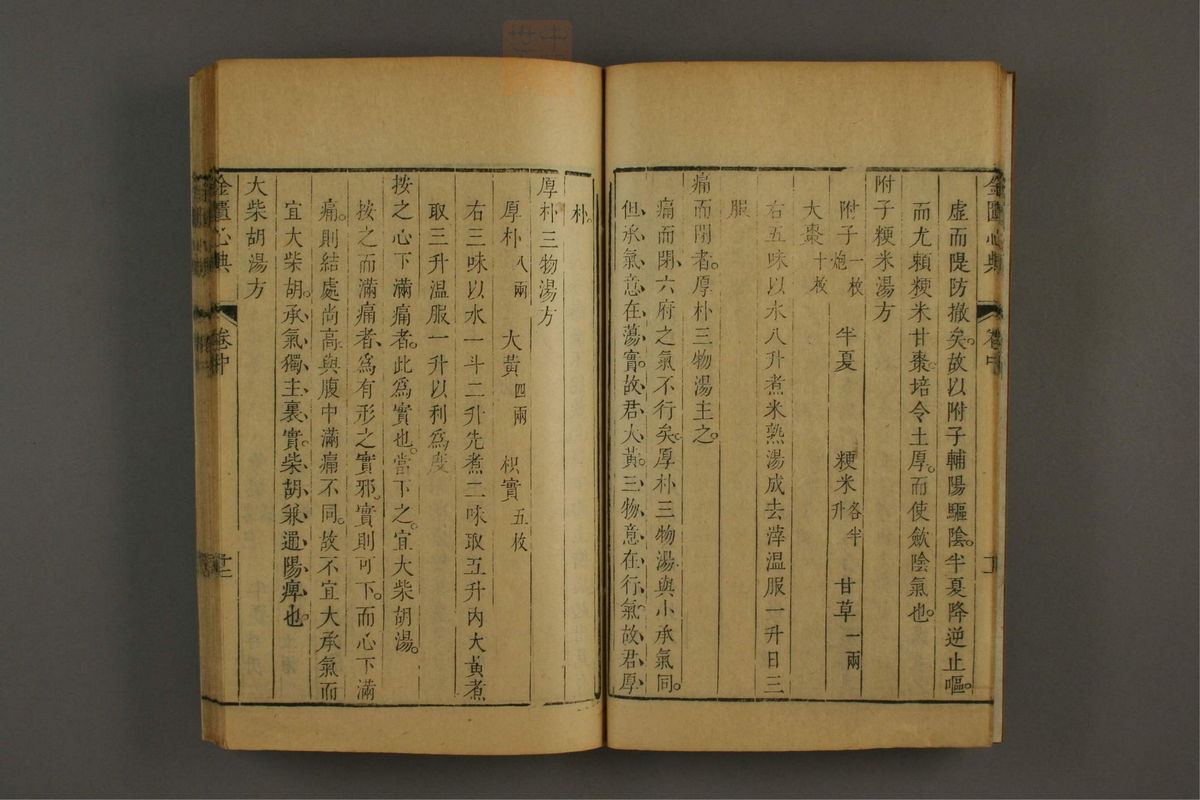 金匱心典 卷中
虛而隄防撤矣。故以附子輔陽驅陰。半夏降逆止嘔。
而尤賴粳米甘棗。培令土厚。而使斂陰氣也。
附子粳米湯方
附子一枚炮 半夏 粳米各半升 甘草一兩
大棗十枚
右五味以水八升煮米熟湯成去滓溫服一升日三
服
痛而閉者。厚朴三物湯主之。
痛而閉、六府之氣不行矣。厚朴三物湯、與小承氣同。
但承氣意在蕩實。故君大黃。三物意在行氣。故君厚
朴。
厚朴三物湯方
厚朴八兩 大黃四兩 枳實五枚
右三味以水一斗二升先煮二味取五升內大黃煮
取三升溫服一升以利為度
按之心下滿痛者。此為實也。當下之。宜大柴胡湯。
按之而滿痛者、為有形之實邪。實則可下。而心下滿
痛。則結處尚高、與腹中滿痛不同。故不宜大承氣而
宜大柴胡。承氣獨主裏實。柴胡兼通陽痺也。
大柴胡湯方
金匱心典 卷中 十二